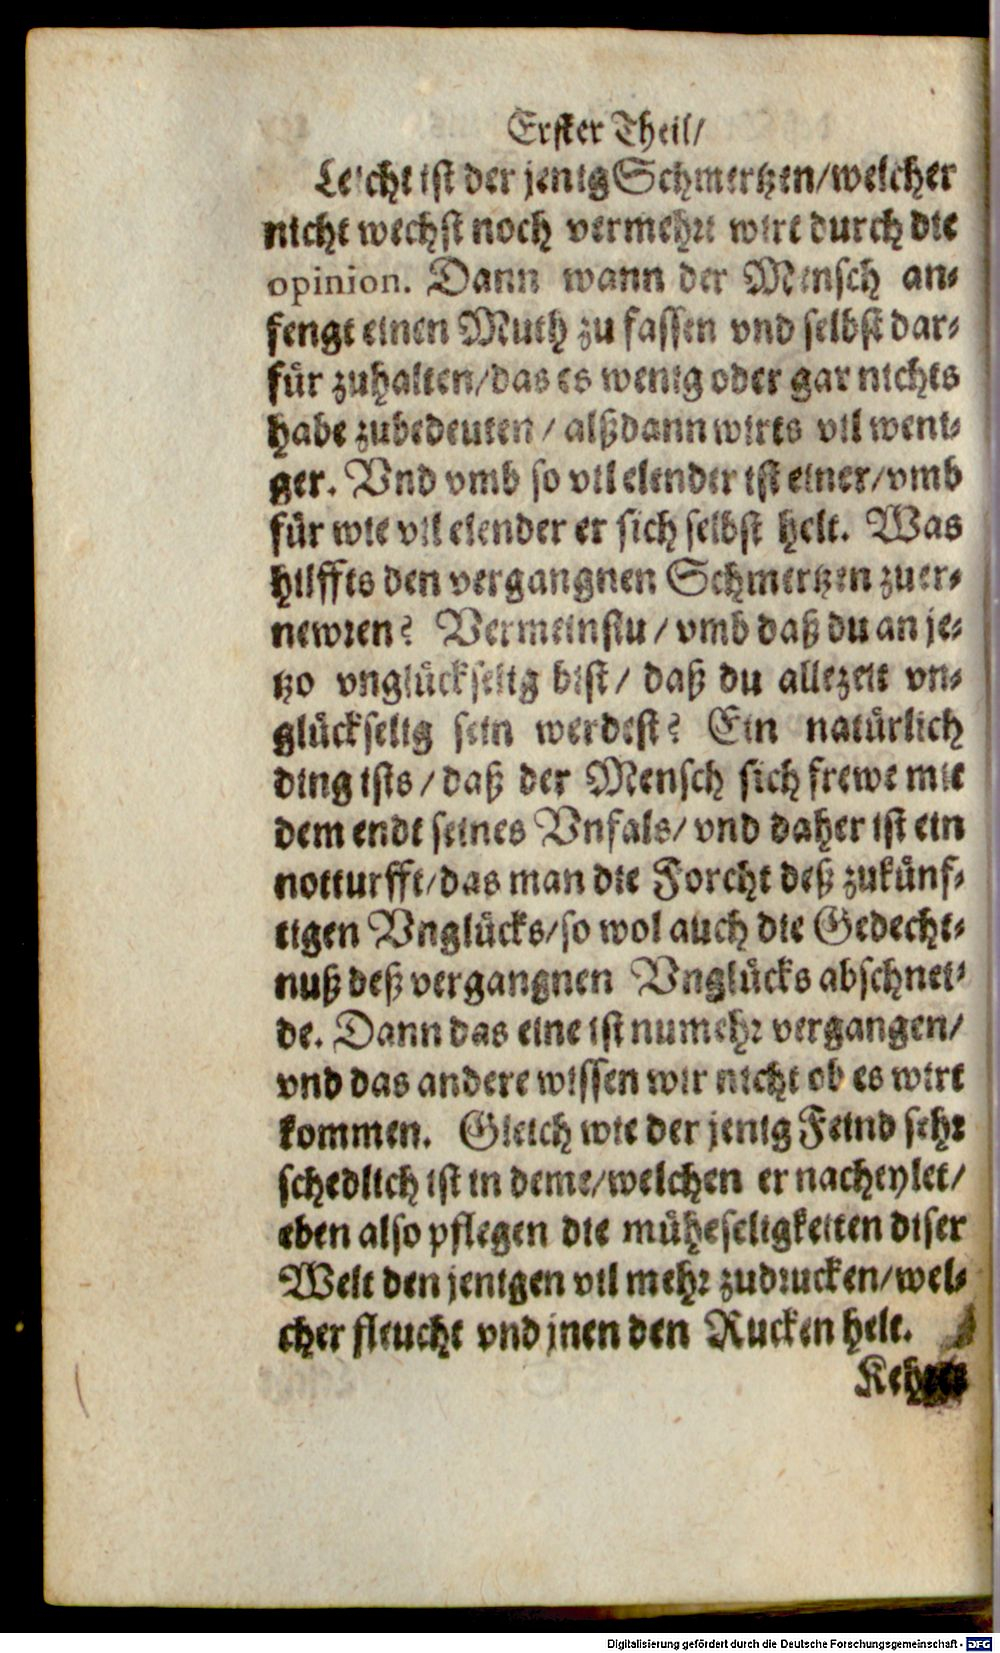 Erster Theil/
Leicht ist der jenig Schmertzen/welcher
nicht wechst noch vermehrt wirt durch die
opinion. Dann wann der Mensch an-
fengt einen Muth zu fassen vnd selbst dar-
für zuhalten/das es wenig oder gar nichts
habe zubedeuten/ alßdann wirts vil weni-
ger. Vnd vmb so vil elender ist einer/vmb
für wie vil elender er sich selbst helt. Was
hilffts den vergangnen Schmertzen zuer-
newren? Vermeinstu/ vmb daß du an je-
tzo vnglückselig bist/ daß du allezeit vn-
glückselig sein werdest? Ein natürlich
ding ists/daß der Mensch sich frewe mit
dem endt seines Vnfals/ vnd daher ist ein
notturfft/das man die Forcht deß zukünf-
tigen Vnglücks/so wol auch die Gedecht-
nuß deß vergangnen Vnglücks abschnei-
de. Dann das eine ist numehr vergangen/
vnd das andere wissen wir nicht ob es wirt
kommen. Gleich wie der jenig Feind sehr
schedlich ist in deme/welchen er nacheylet/
eben also pflegen die müheseligkeiten diser
Welt den jenigen vil mehr zudrucken/wel-
cher fleucht vnd jnen den Rucken helt.
Digitalisierung gefördert durch die Deutsche Forschungsgemeinschaft - DFG